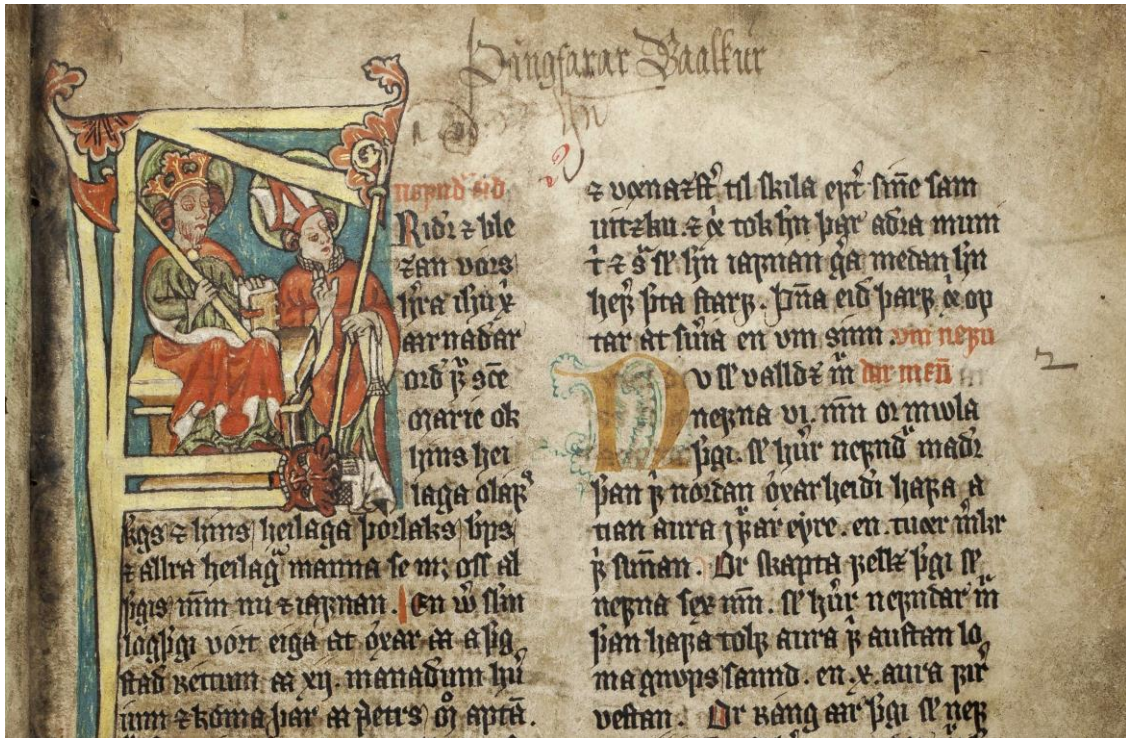 Þingfarar Baalkur
nefnd eid
Ridr ⁊ ble
zan vors
h̅ra ih̅u x̅
aarnadar
ord
marie ok
hins hei
laga olafs
kgs ⁊ hins heilaga þorlaks bps
⁊ allra heilag manna se m; oss al
þgis mm nu ⁊ iafnan. En
logþgi vort eiga at oxar aa a þg
stad rettum aa xij. manadum
inum ⁊ koma þar aa petrs aptā.
til skila ept sinē sam
uitzku. ⁊ tok hn þar adra mun
iafnan gͣa medan hn
hefr þta starf. þn̄a eid þarf ops
tar at suia en vm sinn. vm nefn
dar men̄
v sl valldz m
nefna vi. mn or mwla
þgi. sl hur nefnd madr
þan nordan oxarheidi hafa a
tian aura eyre. en. tueir
sunnan. Or skapta fellz þgi sl
nefna sex mn. sl hur nefndar m
þan hafa tolf aura austan lo
magnups sannd. en. x. aura fir
vestan. Or rang aar þgi sl nef
2